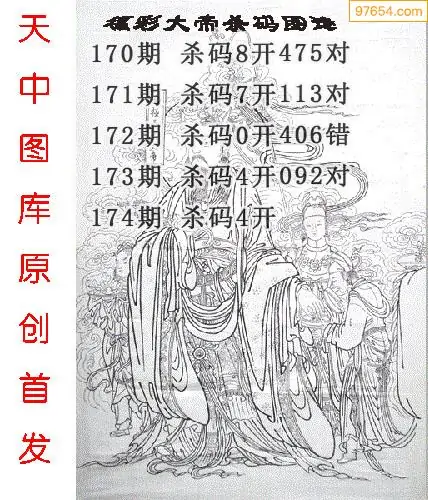 97654.com
福彩大帝杀码图谜
170期 杀码8开475对
171期 杀码7开113对
172期 杀码0开406错
173期 杀码4开092对
174期 杀码4开
天中图库原创首发